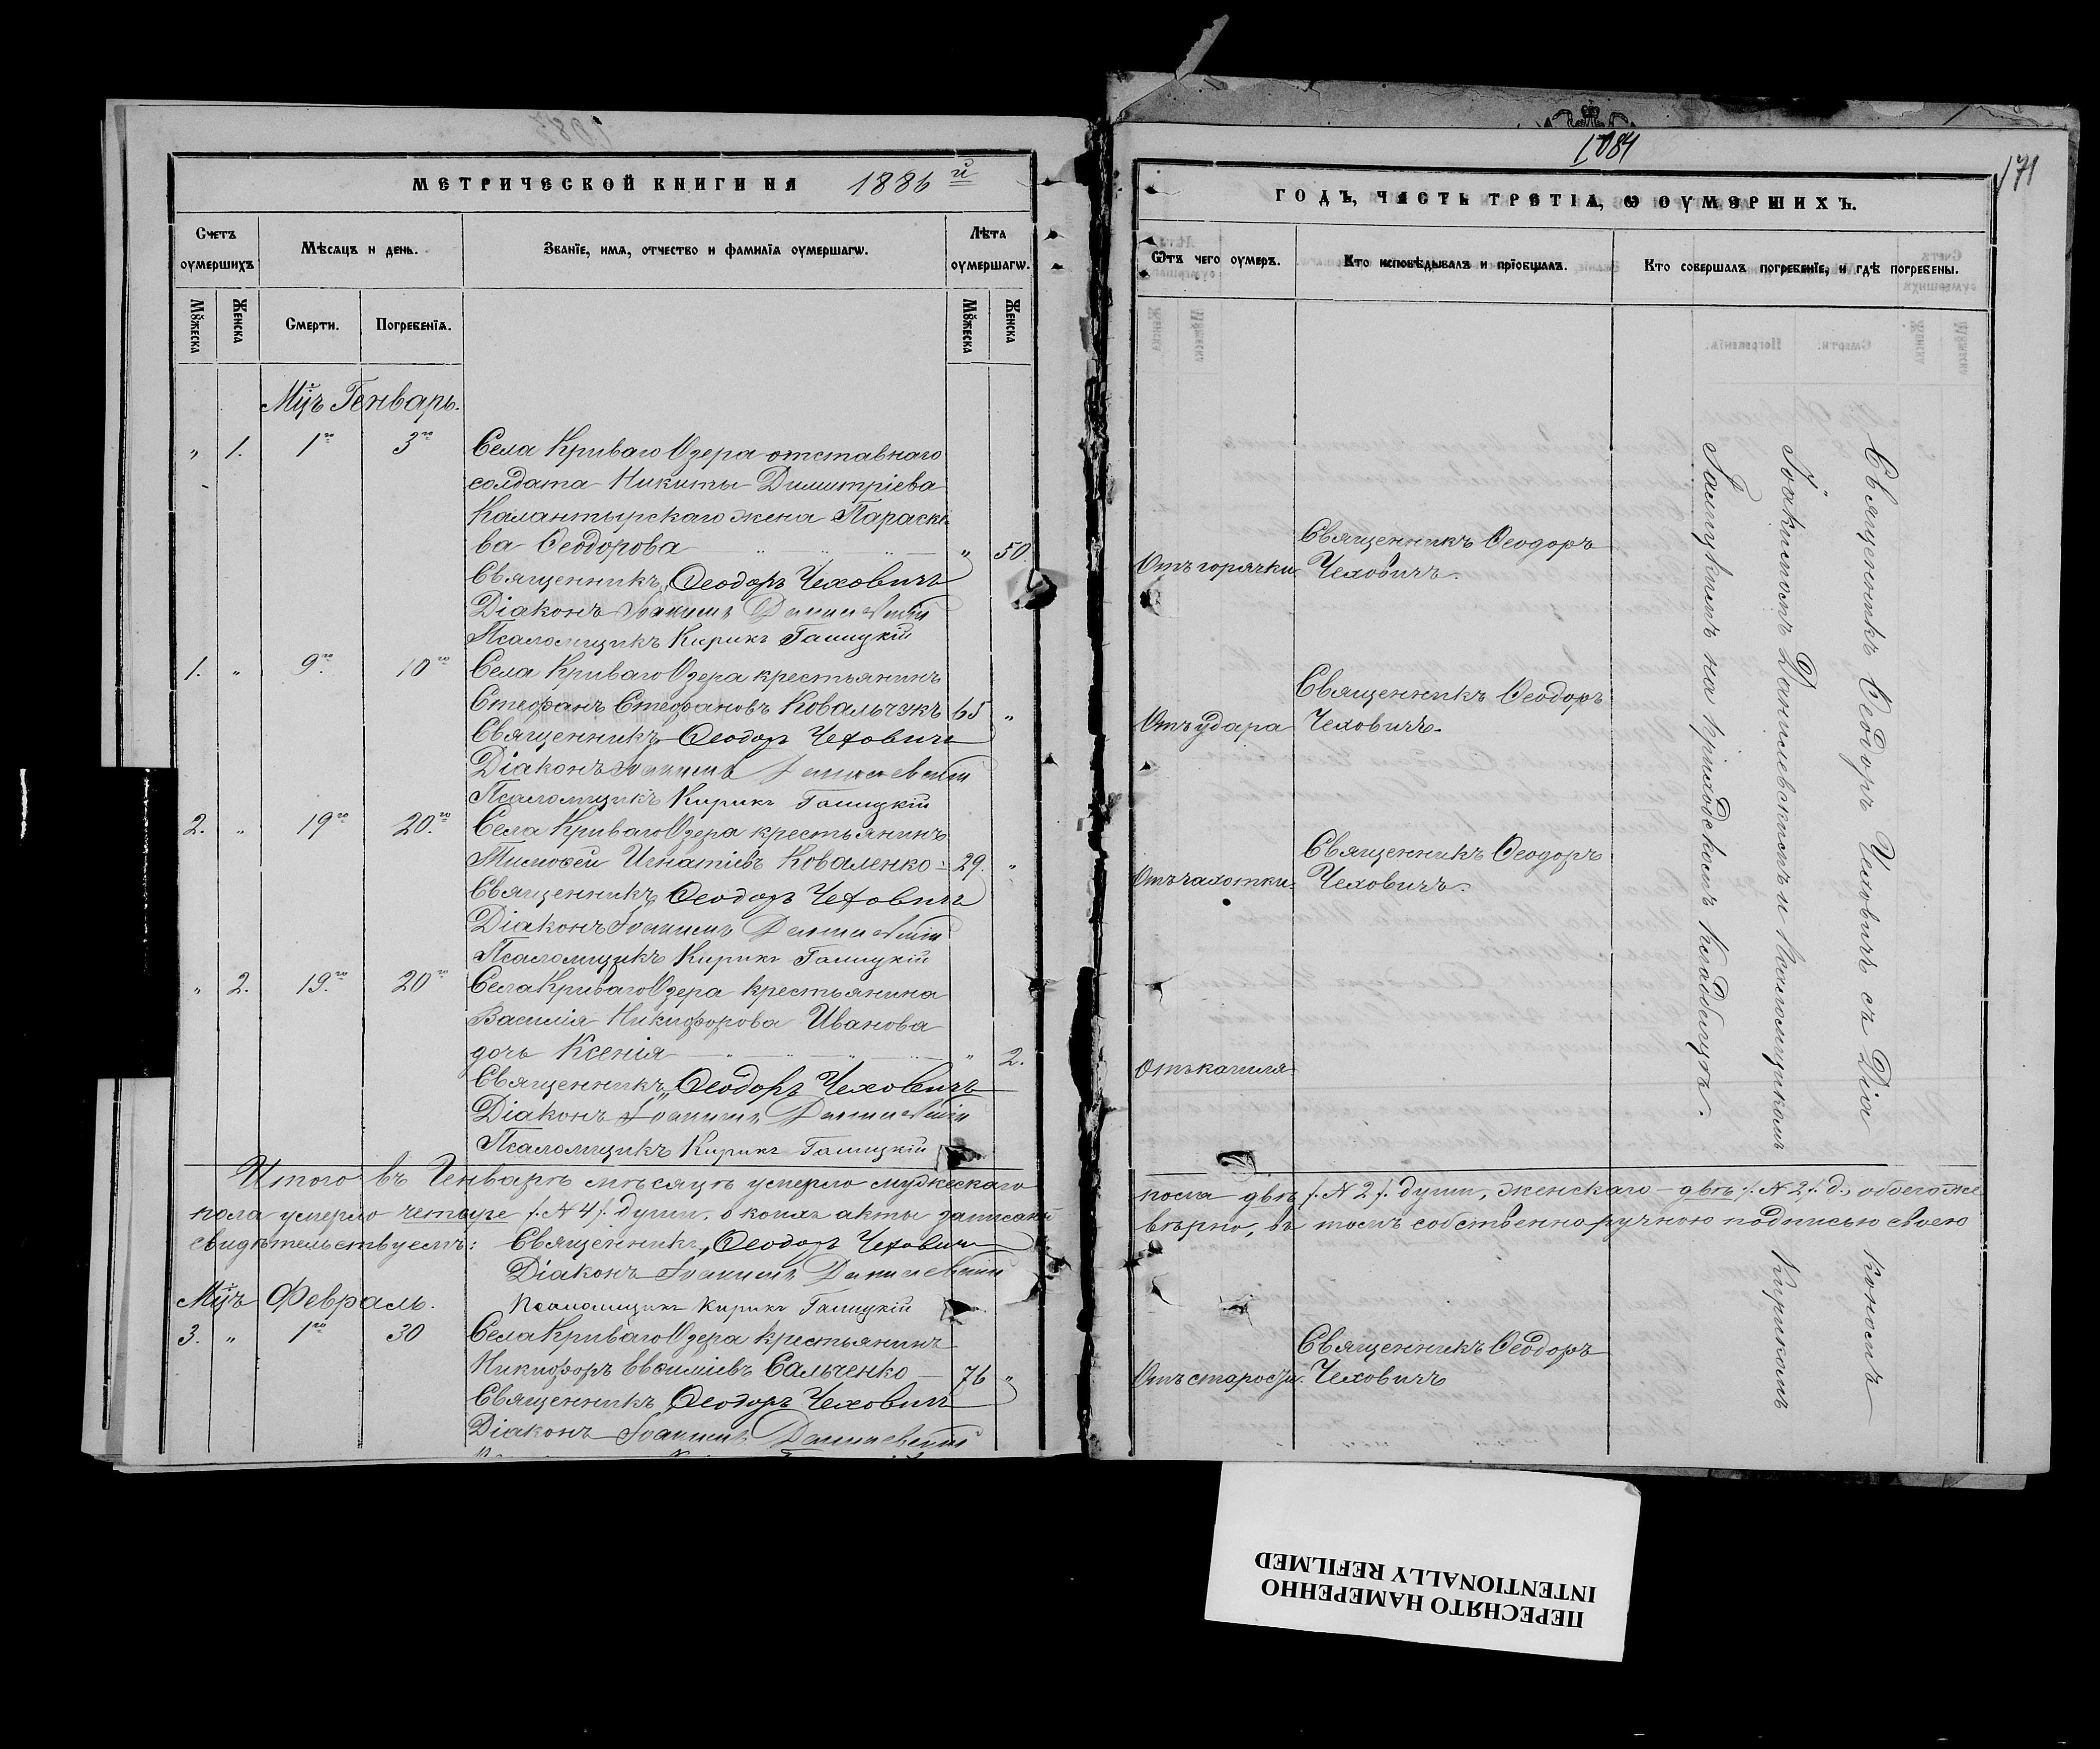 МЕТРИЧЕСКОЙ КНИГИ НА 1886 й
Счетъ оумершихъ
Мѣсяцъ и день.
Званїе, имѧ, отчество и фамилїѧ оумершагѡ.
Лѣта оумершагѡ.
Мꙋжеска
Женска
Смерти.
Погребенїѧ.
Мꙋжеска
Женска
Мц̃ъ Генварь.
" 1. 1го 3го Села Криваго Озера отставнаго
солдата Никиты Димитріева
Калантырскаго жена Параске
ва Ѳеодорова " 50.
Священникъ Ѳеодоръ Чеховичъ
Діаконъ Іоакимъ Данилевскій
Псаломщикъ Кирикъ Галицкій
1. " 9го 10го Села Криваго Озера крестьянинъ
Стефанъ Стефановъ Ковальчукъ 65 "
Священникъ Ѳеодоръ Чеховичъ
Діаконъ Іоакимъ Данилевскій
Псаломщикъ Кирикъ Галицкій
2. " 19го 20.го Села Криваго Озера крестьянинъ
Тимоѳей Игнатіевъ Коваленко 29. "
Священникъ Ѳеодоръ Чеховичъ
Діаконъ Іоакимъ Данилевскій
Псаломщикъ Кирикъ Галицкій
" 2. 19.го 20го Села Криваго Озера крестьянина
Василія Никифорова Иванова
дочь Ксенія " 2.
Священникъ Ѳеодоръ Чеховичъ
Діаконъ Іоакимъ Данилевскій
Псаломщикъ Кирикъ Галицкій
Итого въ Генварѣ мѣсяцѣ умерло мужескаго
пола умерло четыре /. N 4 /. души, о коихъ акты записаны
свидѣтельствуемъ: Священникъ Ѳеодоръ Чеховичъ
Діаконъ Іоакимъ Данилевскій
Псаломщикъ Кирикъ Галицкій
Мц̃ъ Февраль.
3. " 1го 30 Села Криваго Озера крестьянинъ
Никифоръ Евѳиміевъ Сальченко 76 "
Священникъ Ѳеодоръ Чеховичъ
Діаконъ Іоакимъ Данилевскій
1084
171
ГОДЪ, ЧАСТЬ ТРЕТІѦ, Ѡ ОУМЕРШИХЪ.
Ѿтъ чего оумеръ.
Кто исповѣдывалъ и прїобщалъ.
Кто совершалъ погребенїе, и гдѣ погребены.
Отъ горячки Священникъ Ѳеодоръ
Чеховичъ.
Отъ удара Священникъ Ѳеодоръ
Чеховичъ.
Отъ чахотки. Священникъ Ѳеодоръ
Чеховичъ.
Отъ кашля
Священникъ Ѳеодоръ Чеховичъ съ Діа
кономъ
Іоакимомъ Данилевскимъ и Псаломщикомъ
Кирикомъ
Галицкимъ на приходскомъ кладбищѣ.
пола двѣ /. N 2 /. души, женскаго двѣ /. N 2 /. д., обоего же
вѣрно, въ томъ собственноручною подписью своею
Отъ старости. Священникъ Ѳеодоръ
Чеховичъ
ПЕРЕСНЯТО НАМЕРЕННО
INTENTIONALLY REFILMED